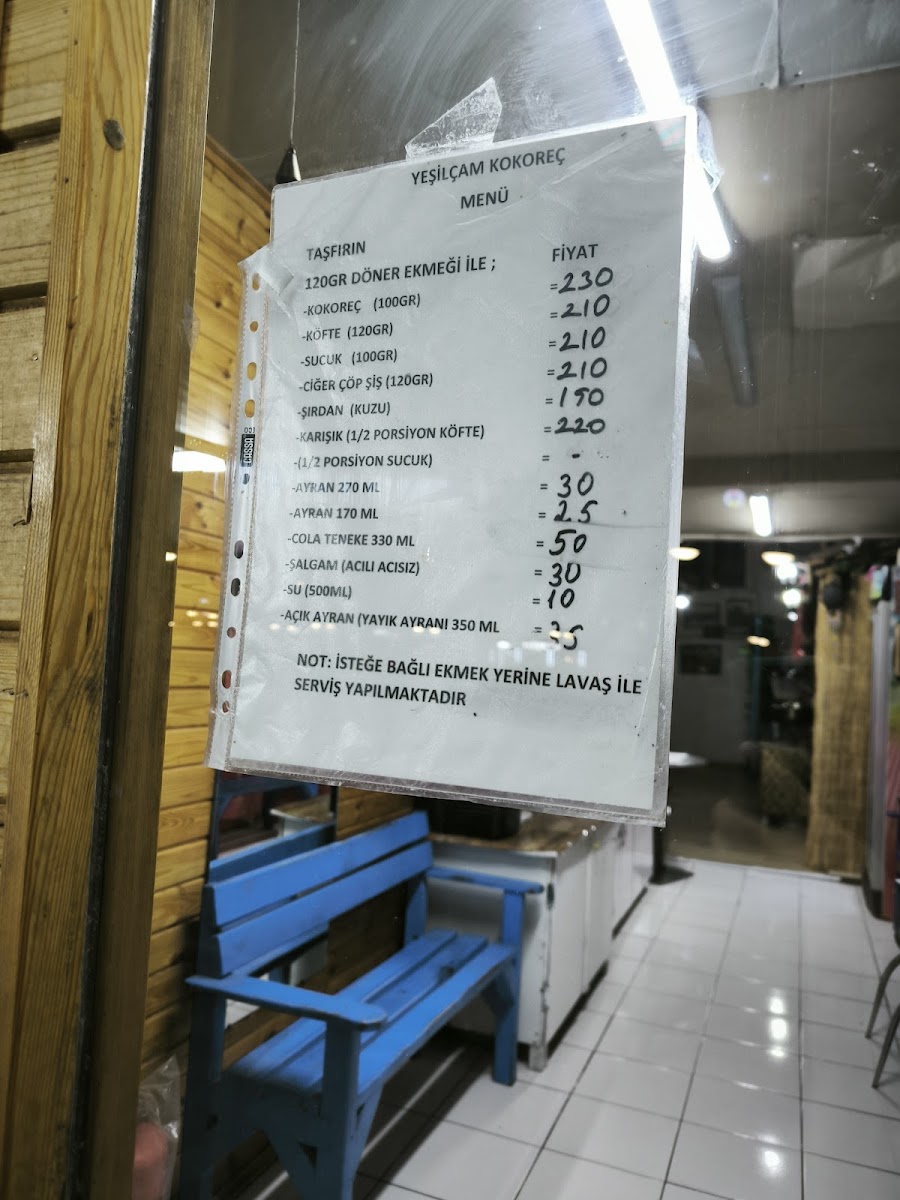 YEŞİLÇAM KOKOREÇ
MENÜ
TAŞFIRIN FİYAT
120GR DÖNER EKMEĞİ İLE ;
-KOKOREÇ (100GR) =230
-KÖFTE (120GR) =210
-SUCUK (100GR) =210
-CİĞER ÇÖP ŞİŞ (120GR) =210
-ŞIRDAN (KUZU) =190
-KARIŞIK (1/2 PORSİYON KÖFTE) =220
-(1/2 PORSİYON SUCUK) = -
-AYRAN 270 ML = 30
-AYRAN 170 ML = 25
-COLA TENEKE 330 ML = 50
-ŞALGAM (ACILI ACISIZ) = 30
-SU (500ML) = 10
-AÇIK AYRAN (YAYIK AYRANI 350 ML = 35
NOT: İSTEĞE BAĞLI EKMEK YERİNE LAVAŞ İLE
SERVİŞ YAPILMAKTADIR